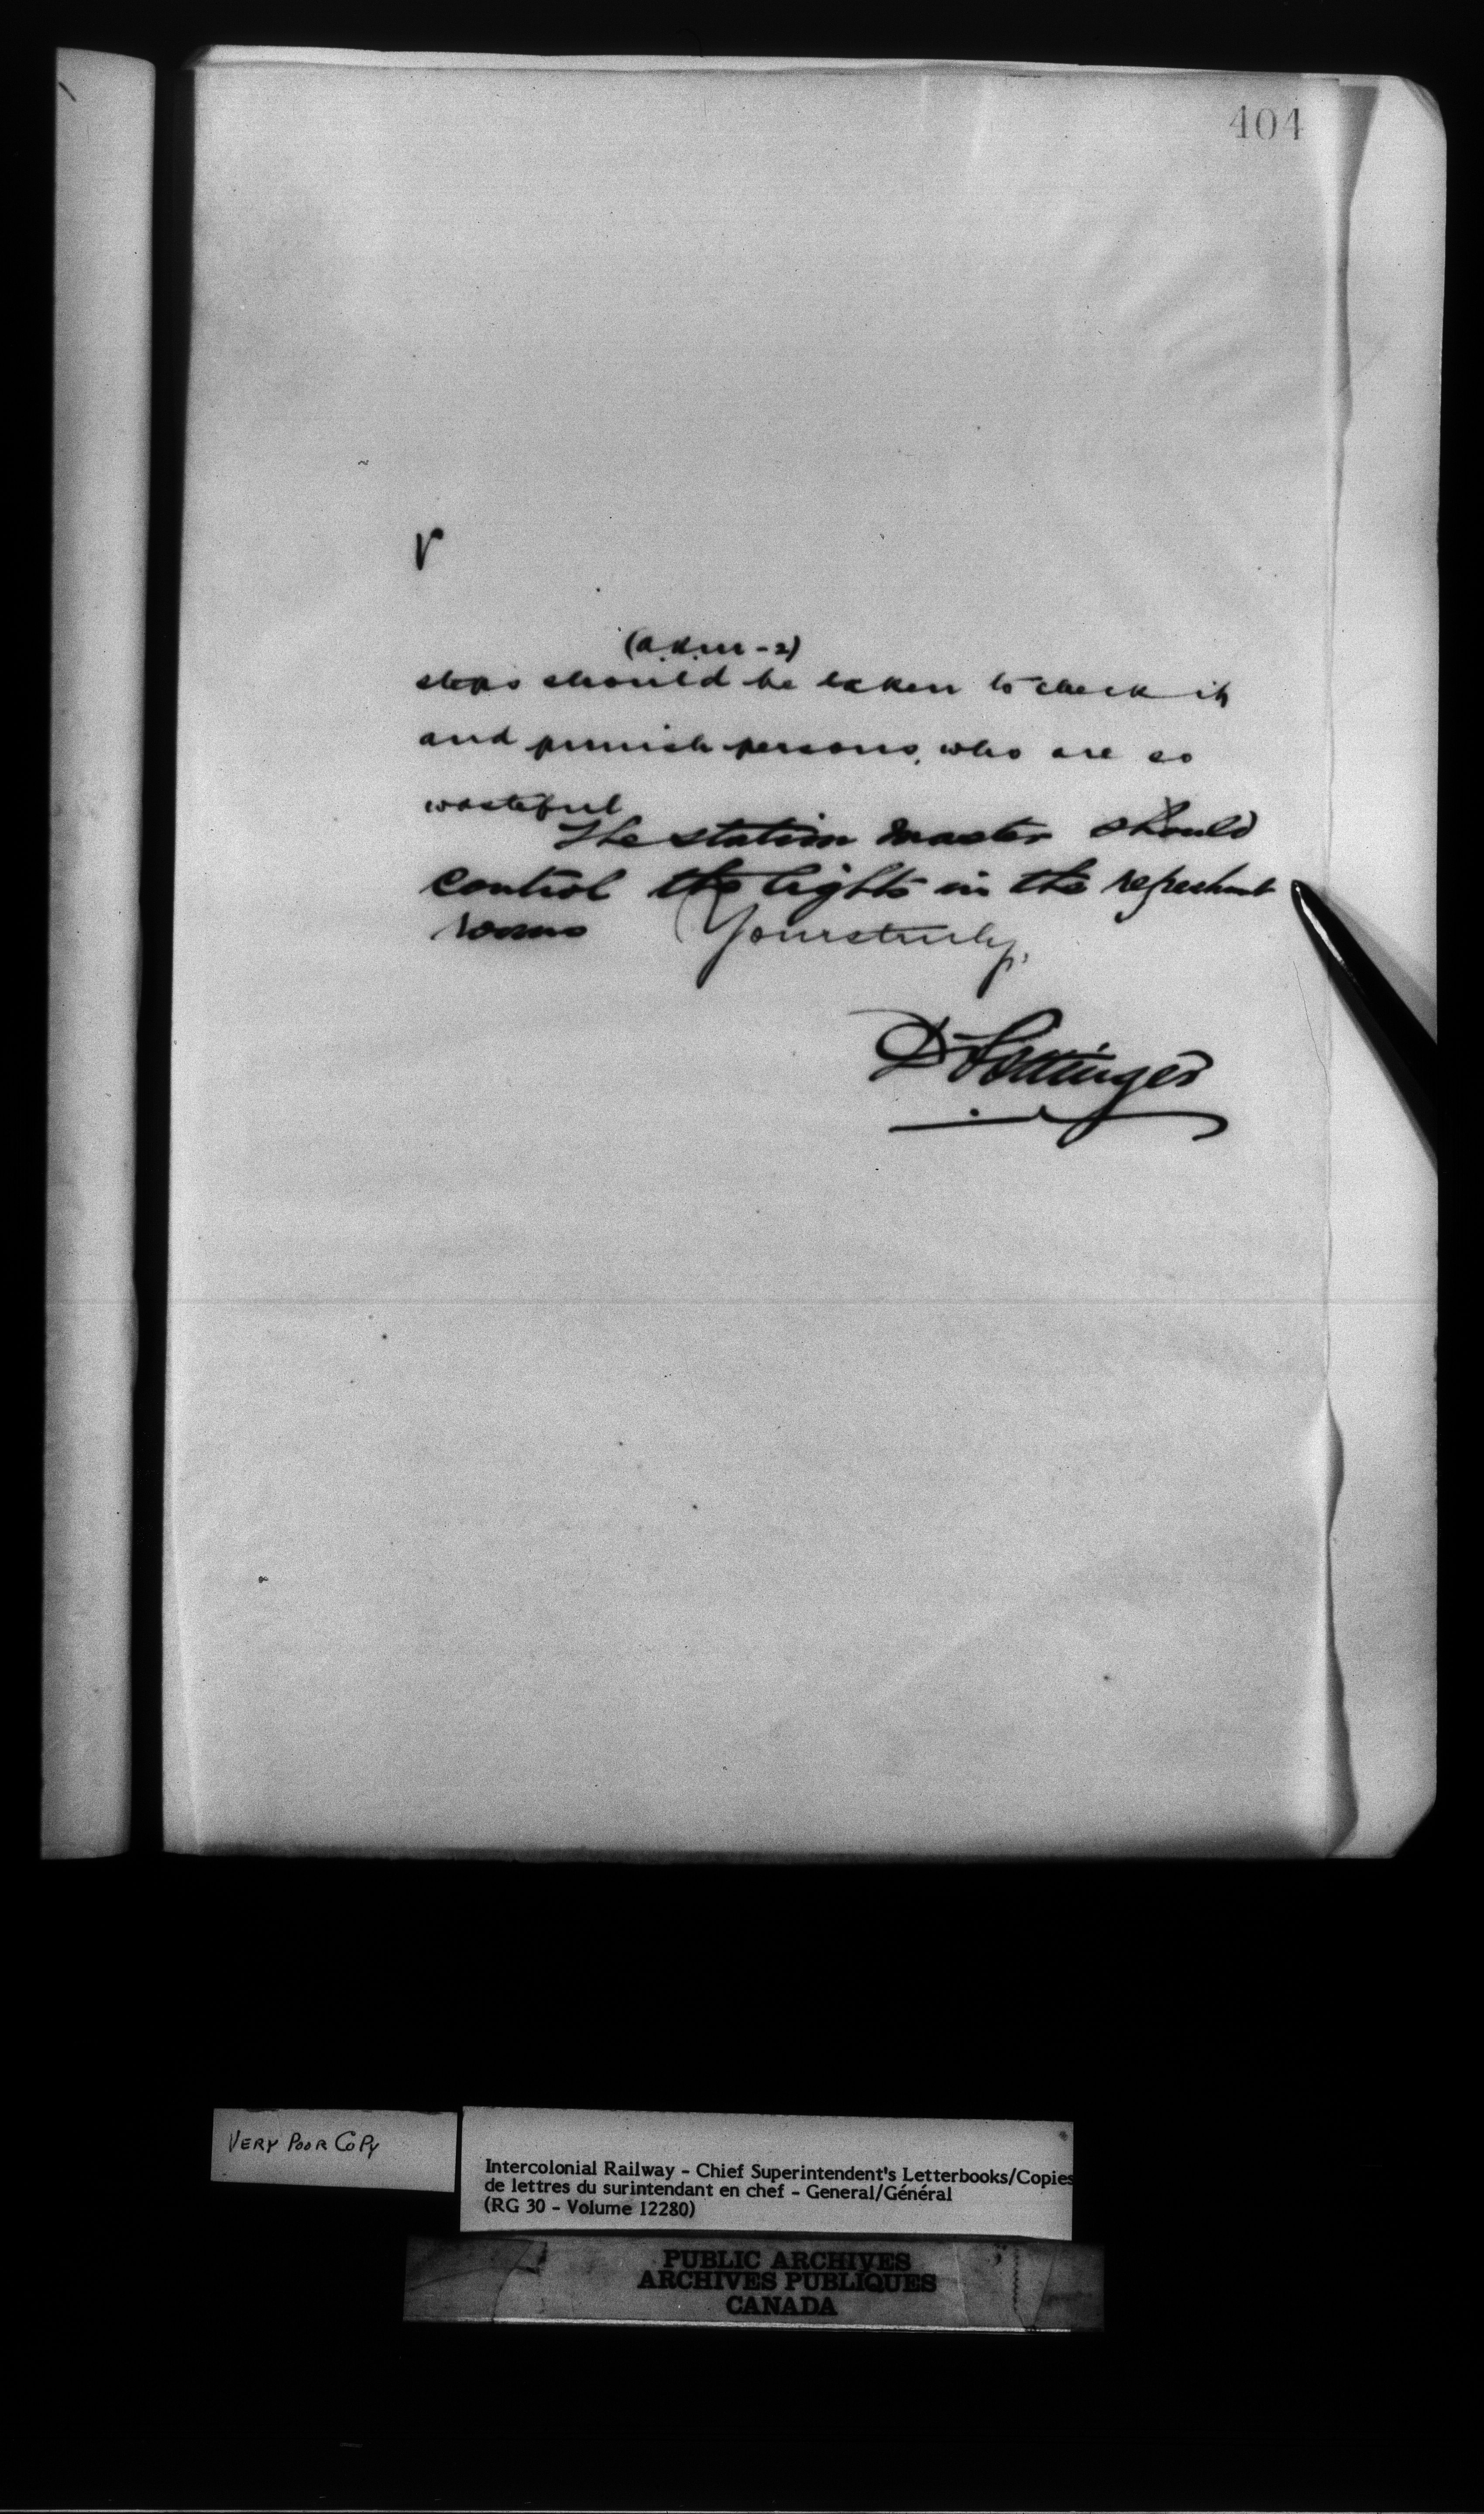 404
steps should be taken to check it
and punish persons, who are so
wasteful
The station master should
control the lights in the refreshmt
rooms Yours truly,
D Pottinger
VERY POOR COPY
Intercolonial Railway - Chief Superintendent's Letterbooks/Copies
de lettres du surintendant en chef - General/Général
(RG 30 - Volume 12280)
PUBLIC ARCHIVES
ARCHIVES PUBLIQUES
CANADA